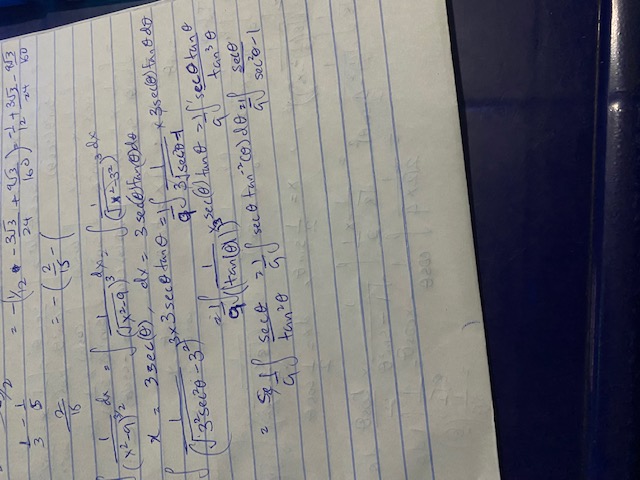 1/3 - 1/5 = -(1/12 - 3√3/24 + 9√3/160) = -1/12 + 3√3/24 - 9√3/160
2/15 = -(2/15 - (
∫ 1/(x²-9)^3/2 dx = ∫ 1/(√x²-9)³ dx = ∫ 1/(√x²-3²)³ dx
x = 3sec(θ), dx = 3sec(θ)tan(θ)dθ
∫ 1/(√3²sec²θ - 3²)³ × 3secθ tanθ = 1/9 ∫ 1/3√secθ-1 × 3secθ) tanθ dθ
= 1/9 ∫ 1/((tan(θ))³ × sec(θ) tanθ = 1/9 ∫ secθ tanθ/tan³θ
= 1/9 ∫ secθ/tan²θ = 1/9 ∫ secθ tan⁻²(θ) dθ = 1/9 ∫ secθ/sec²θ-1